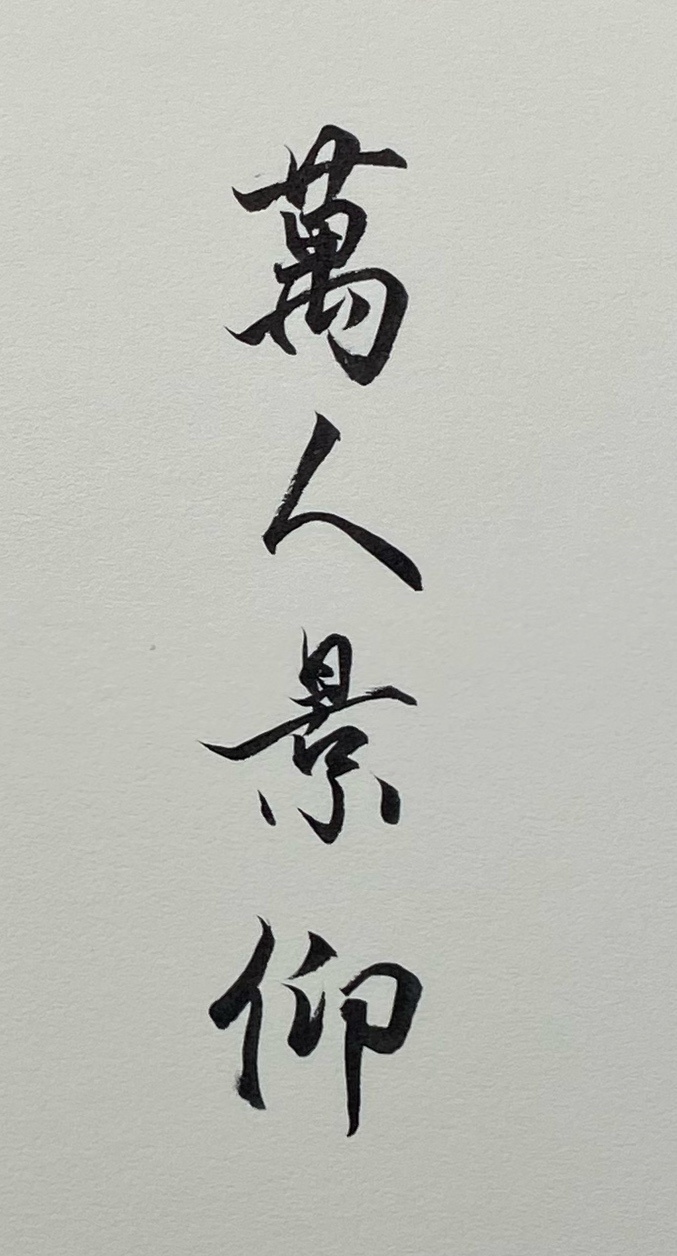 萬人景仰